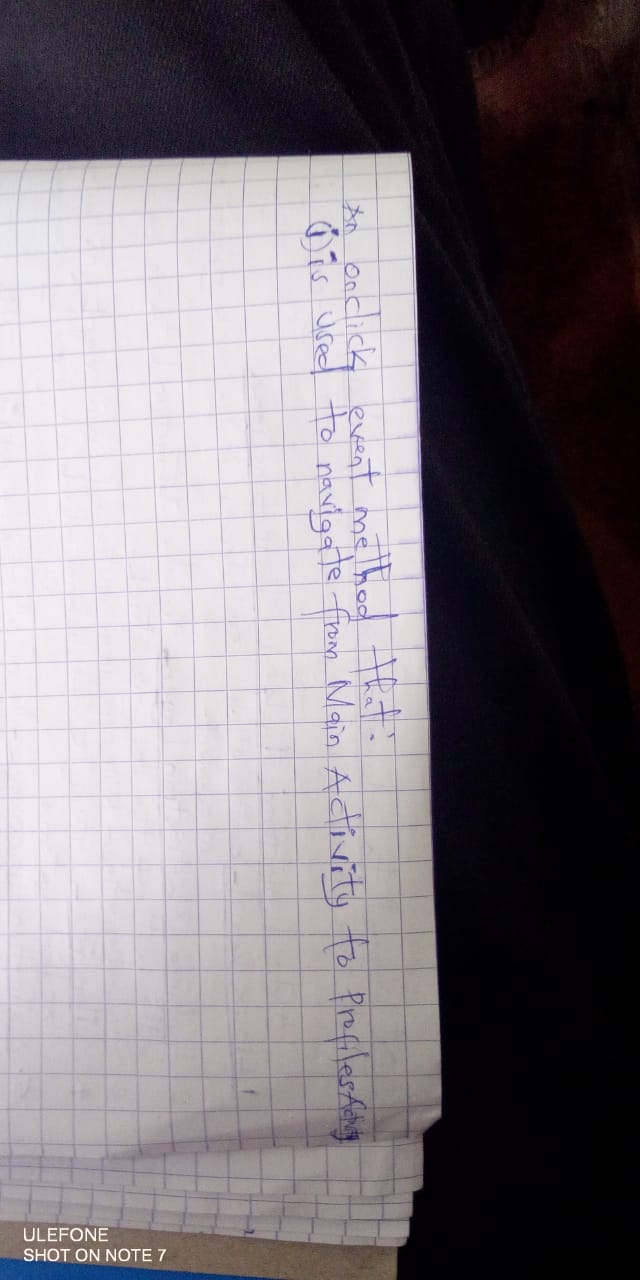 An onclick event method that:
(i) is used to navigate from Main Activity to ProfilesActivity
ULEFONE
SHOT ON NOTE 7